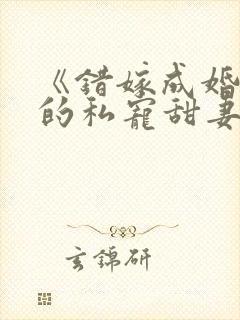 《错嫁成婚
的私宠甜妻
玄锦研